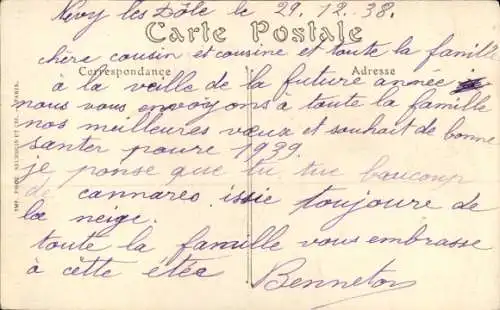 Névy les Dôle le 29.12.38.
Carte Postale
chère cousin et cousine et toute la famille
Correspondance
Adresse
à la veille de la future année
nous vous envoyons à toute la famille
nos meilleures vœux et souhait de bonne
santer poure 1939
je ponse que tu tue baucoup
de cannares. issie toujoure de
la neige.
toute la famille vous embrasse
à cette
Benneton